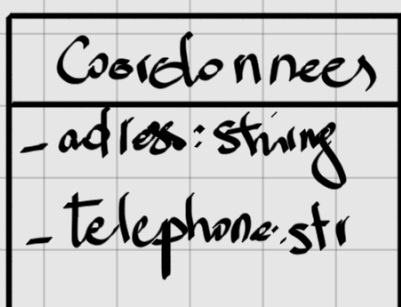 Coordonnees
- adress: string
- telephone: str